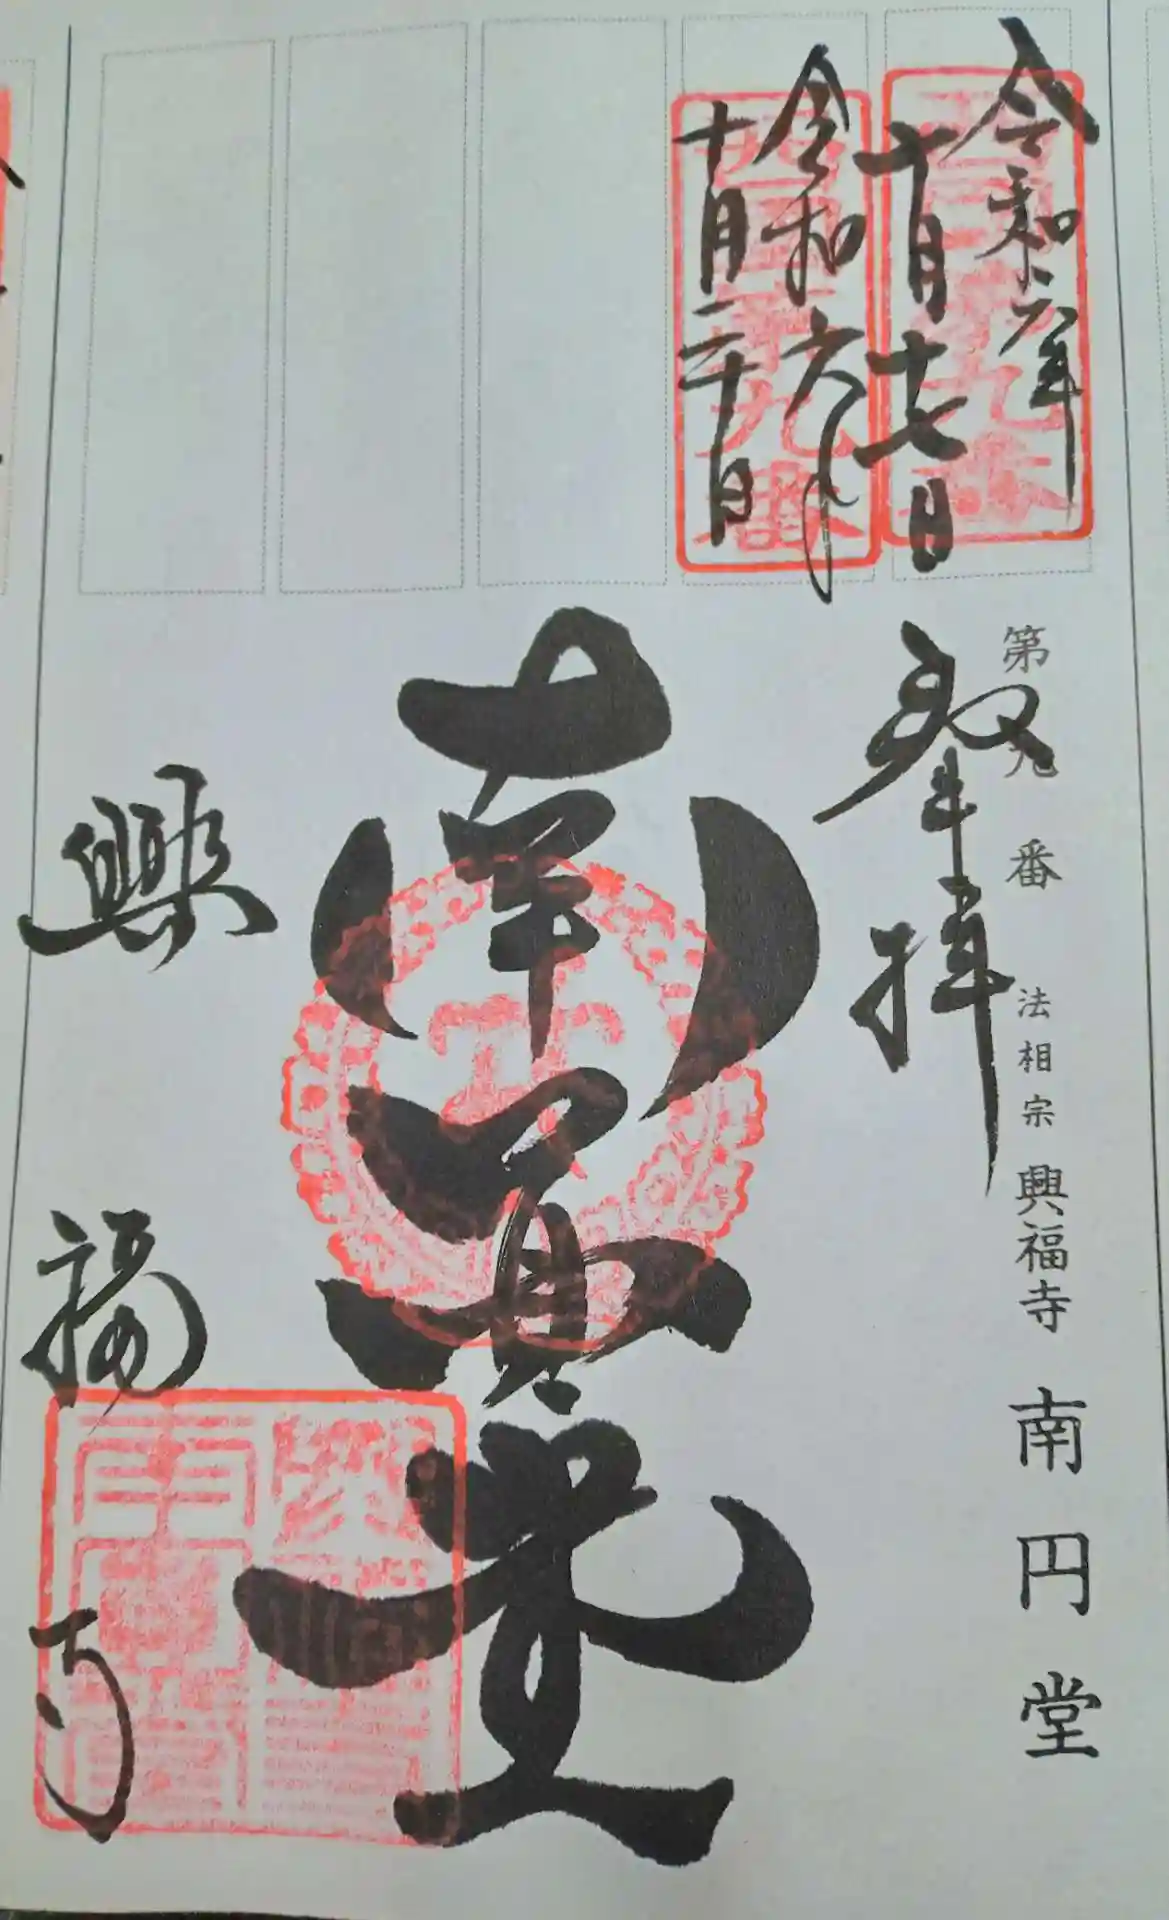 令和六年
十月十七日
令和六年
十月二十日
西国第九番
第九番 法相宗 興福寺 南円堂
奉拝
南円堂
興福寺